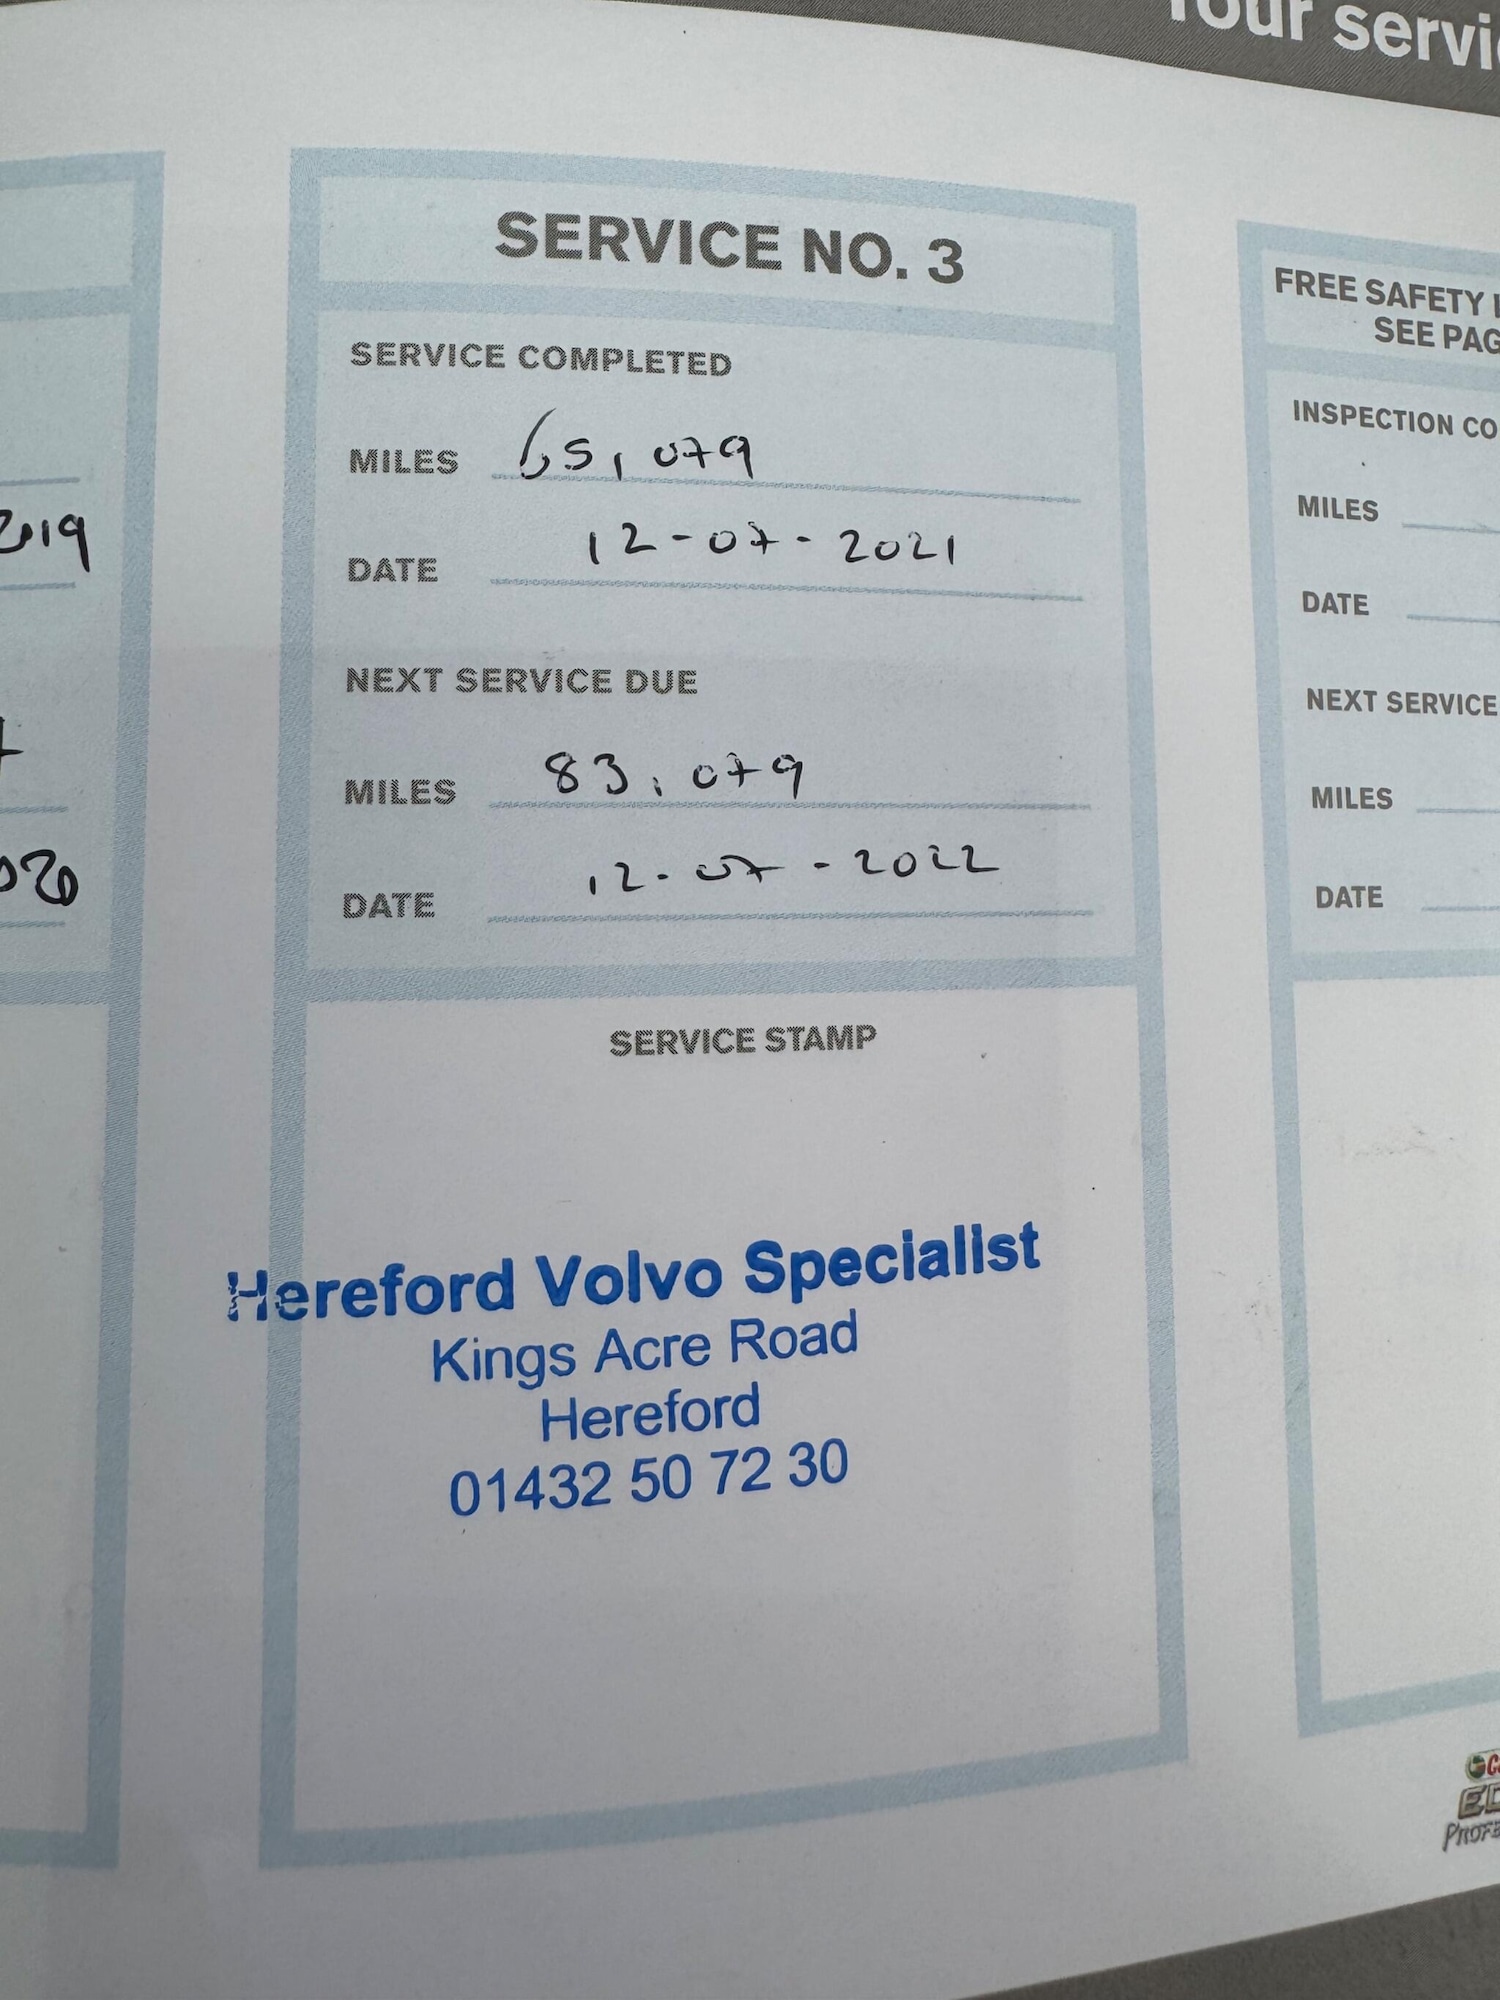 Your servi
SERVICE NO. 3
SERVICE COMPLETED
MILES 65,079
DATE 12-07-2021
NEXT SERVICE DUE
MILES 83,079
DATE 12-07-2022
SERVICE STAMP
Hereford Volvo Specialist
Kings Acre Road
Hereford
01432 50 72 30
2019
020
FREE SAFETY I
SEE PAG
INSPECTION CO
MILES
DATE
NEXT SERVICE
MILES
DATE
ED
PROFE